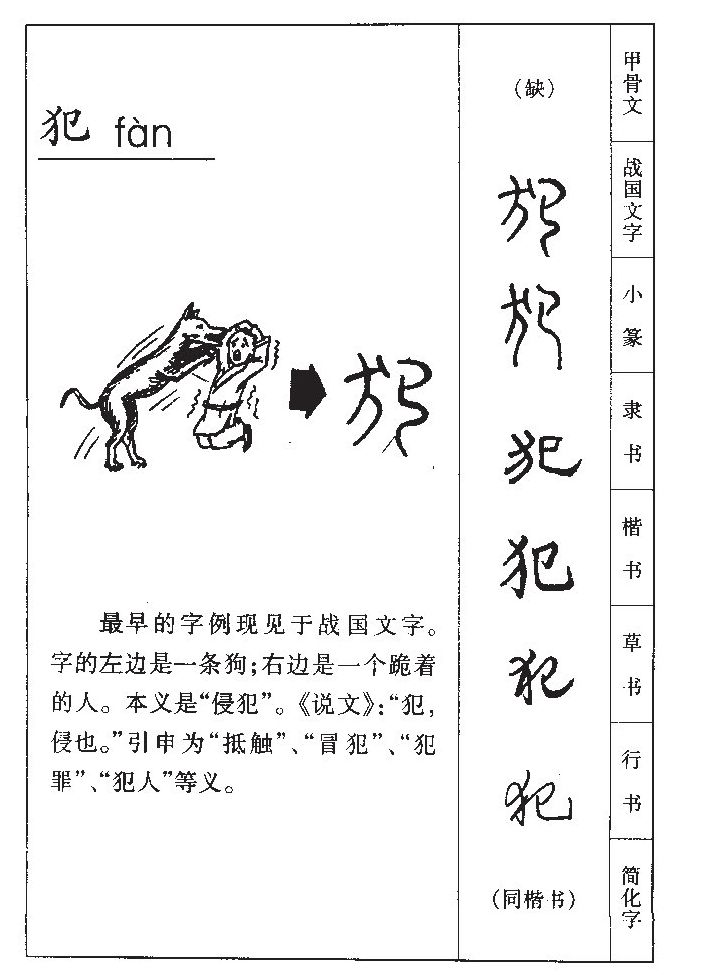 犯 fàn
最早的字例现见于战国文字。
字的左边是一条狗;右边是一个跪着
的人。本义是“侵犯”。《说文》:“犯,
侵也。”引申为“抵触”、“冒犯”、“犯
罪”、“犯人”等义。
犯
(缺)
犯
犯
犯
犯
犯
犯
(同楷书)
甲骨文
战国文字
小篆
隶书
楷书
草书
行书
简化字